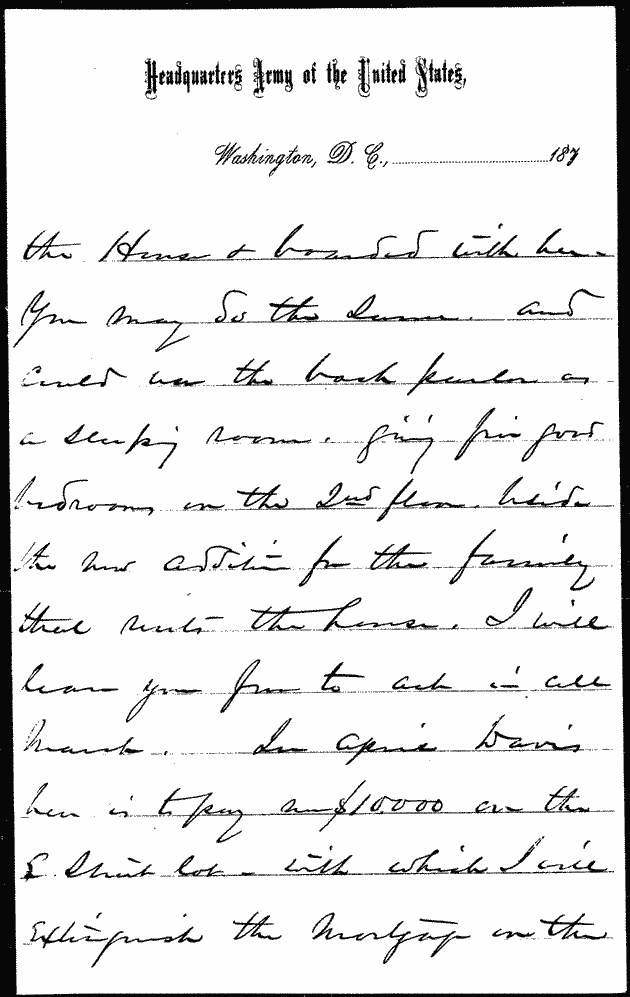 Headquarters Army of the United States,
Washington, D. C., 187
the House & boarded with her.
You may do the same. and
could use the back parlor as
a sleeping room. giving five good
bedrooms on the 2nd floor. beside
the new addition for the family
that rents the house. I will
leave you free to act in all
March. In April Davis
here is to pay me $10000 on the
E Street lot - with which I will
extinguish the Mortgage on the